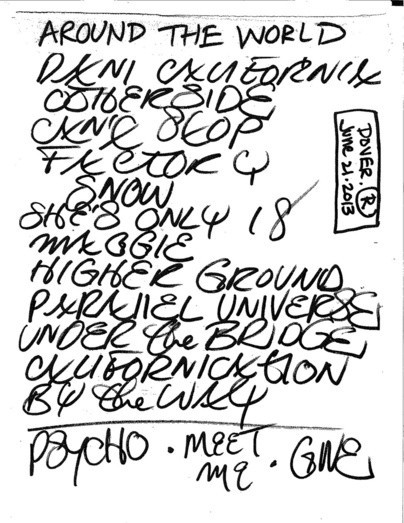 AROUND THE WORLD
DANI CALIFORNIA
OTHERSIDE
CAN'T STOP
FACTORY
SNOW
SHE'S ONLY 18
MAGGIE
HIGHER GROUND
PARALLEL UNIVERSE
UNDER the BRIDGE
CALIFORNICATION
BY the WAY
PSYCHO . MEET
ME . GIVE
DOVER. R
JUNE 21. 2013